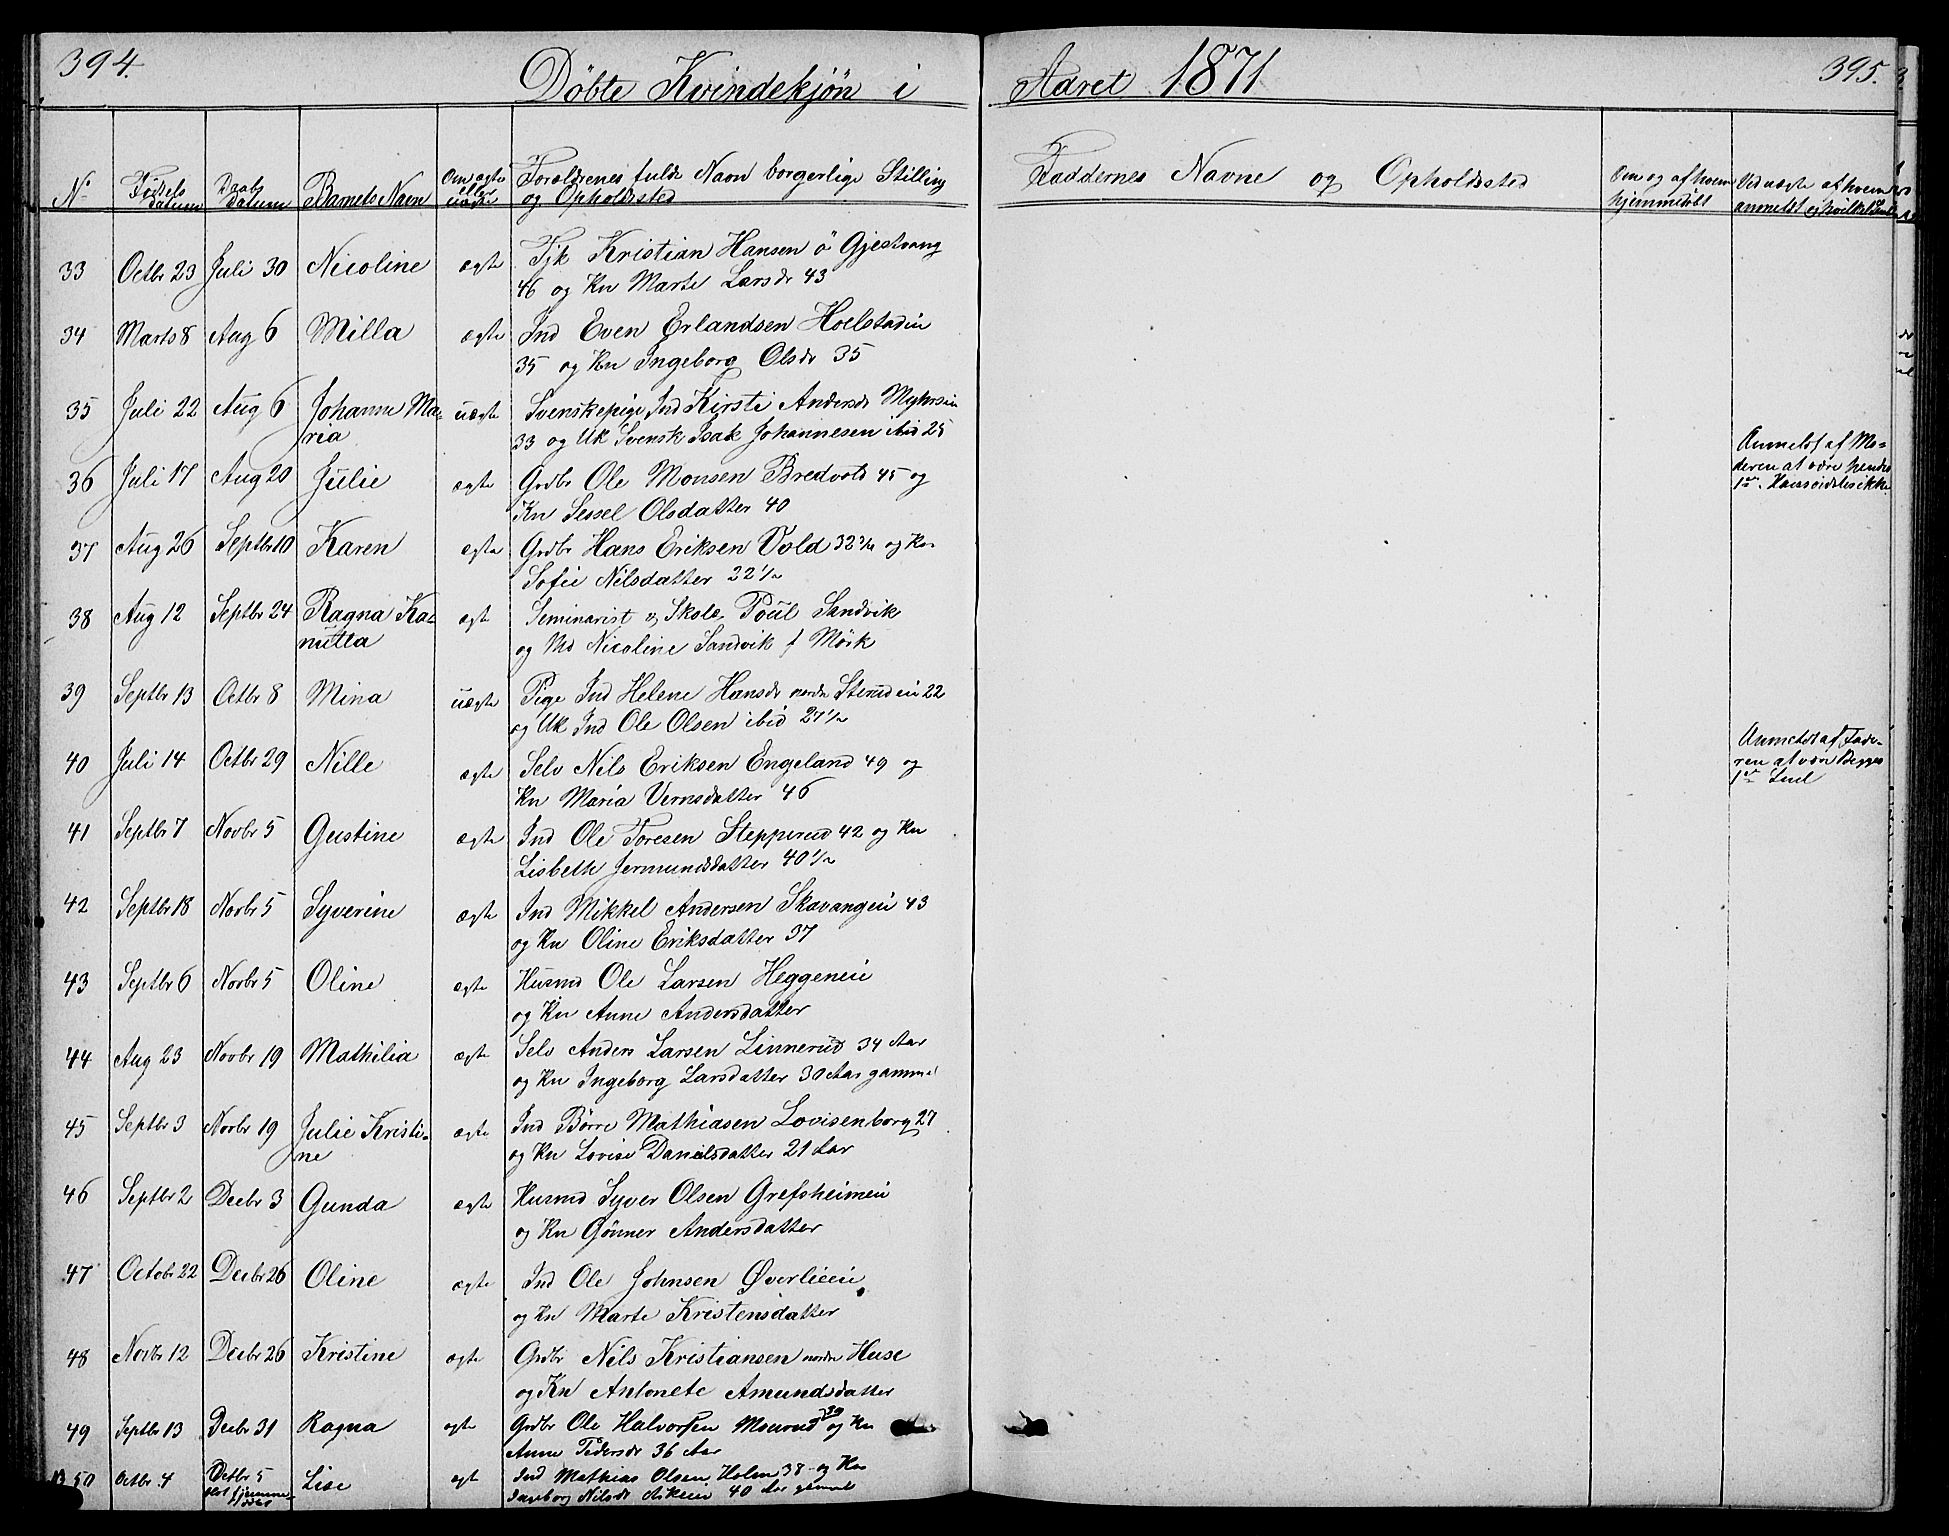 394.
Döbte Kvindekjön i
Aaret 1871
395.
No
Födsels datum
Daabs datum
Barnets Navn
Om ægte eller uægte
Forældrenes fulde Navn borgerlige Stilling og Opholdssted
Faddernes Navne og Opholdssted
Om og af hvem hjemmedöbt
Ved uægte af hvem anmeldt
33 Octbr 23 Juli 30 Nicoline ægte Tjk Kristian Hansen ö Gjestvang
46 og Kn Marte Larsdr 43
34 Marts 8 Aug 6 Milla ægte Ind Even Erlandsen Hoelstadeie
35 og Kn Ingeborg Olsdr 35
35 Juli 22 Aug 6 Johanne Ma- uægte Svenskepige Ind Kirsti Andersdr Myhrseie
ria 33 og Uk Svensk Isak Johannesen ibid 25
Anmeldt af Mo-
deren at være hendes
1ste
36 Juli 17 Aug 20 Julie ægte Grdbr Ole Monsen Bredvold 45 og
Kn Sessel Olsdatter 40
37 Aug 26 Septbr 10 Karen ægte Grdbr Hans Eriksen Vold 32 3/4 og Kn
Sofie Nilsdatter 22 1/2
38 Aug 12 Septbr 24 Ragna Ka- ægt Seminarist og Skolel Poul Sandvik
nutta og Md Nicoline Sandvik f Mörk
39 Septbr 13 Octbr 8 Mina uægte Pige Ind Helene Hansdr nordre Sterudeie 22
og Uk Ind Ole Olsen ibid 27 1/2
Anmeldt af Fade-
ren at være Begges
1ste
40 Juli 14 Octbr 29 Nille ægte Selv Nils Eriksen Engeland 49 og
Kn Maria Vernsdatter 46
41 Septbr 7 Novbr 5 Gustine ægte Ind Ole Toresen Stepperud 42 og Kn
Lisbeth Jermundsdatter 40 1/2
42 Septbr 18 Novbr 5 Syverine ægte Ind Mikkel Andersen Skavangeie 43
og Kn Oline Eriksdatter 37
43 Septbr 6 Novbr 5 Oline ægte Husmd Ole Larsen Heggeneie
og Kn Anne Andersdatter
44 Aug 23 Novbr 19 Mathilia ægte Selv Anders Larsen Linnerud 34 Aar
og Kn Ingeborg Larsdatter 30 Aar gammel
45 Septbr 3 Novbr 19 Julie Kristi- ægte Ind Börre Mathiasen Lovisenborg 27
ne og Kn Lovise Danielsdatter 21 Aar
46 Septbr 2 Decbr 3 Gunda ægte Husmd Syver Olsen Grefsheimeie
og Kn Gönner Andersdatter
47 Octobr 22 Decbr 26 Oline ægte Ind Ole Johnsen Øverlieeie
og Kn Marte Kristensdatter
48 Novbr 12 Decbr 26 Kristine ægte Grdbr Nils Kristiansen nordre Huse
og Kn Antonete Amundsdatter
49 Septbr 13 Decbr 31 Ragna ægte Grdbr Ole Halvorsen Mourud 39 og Kn
Anne Pedersdr 36 Aar
50 Octbr 4 Octbr 5 Lise ægt Ind Mathias Olsen Holm 38 og Kn
Ingeborg Nilsdr Askeie 40 Aar gammel